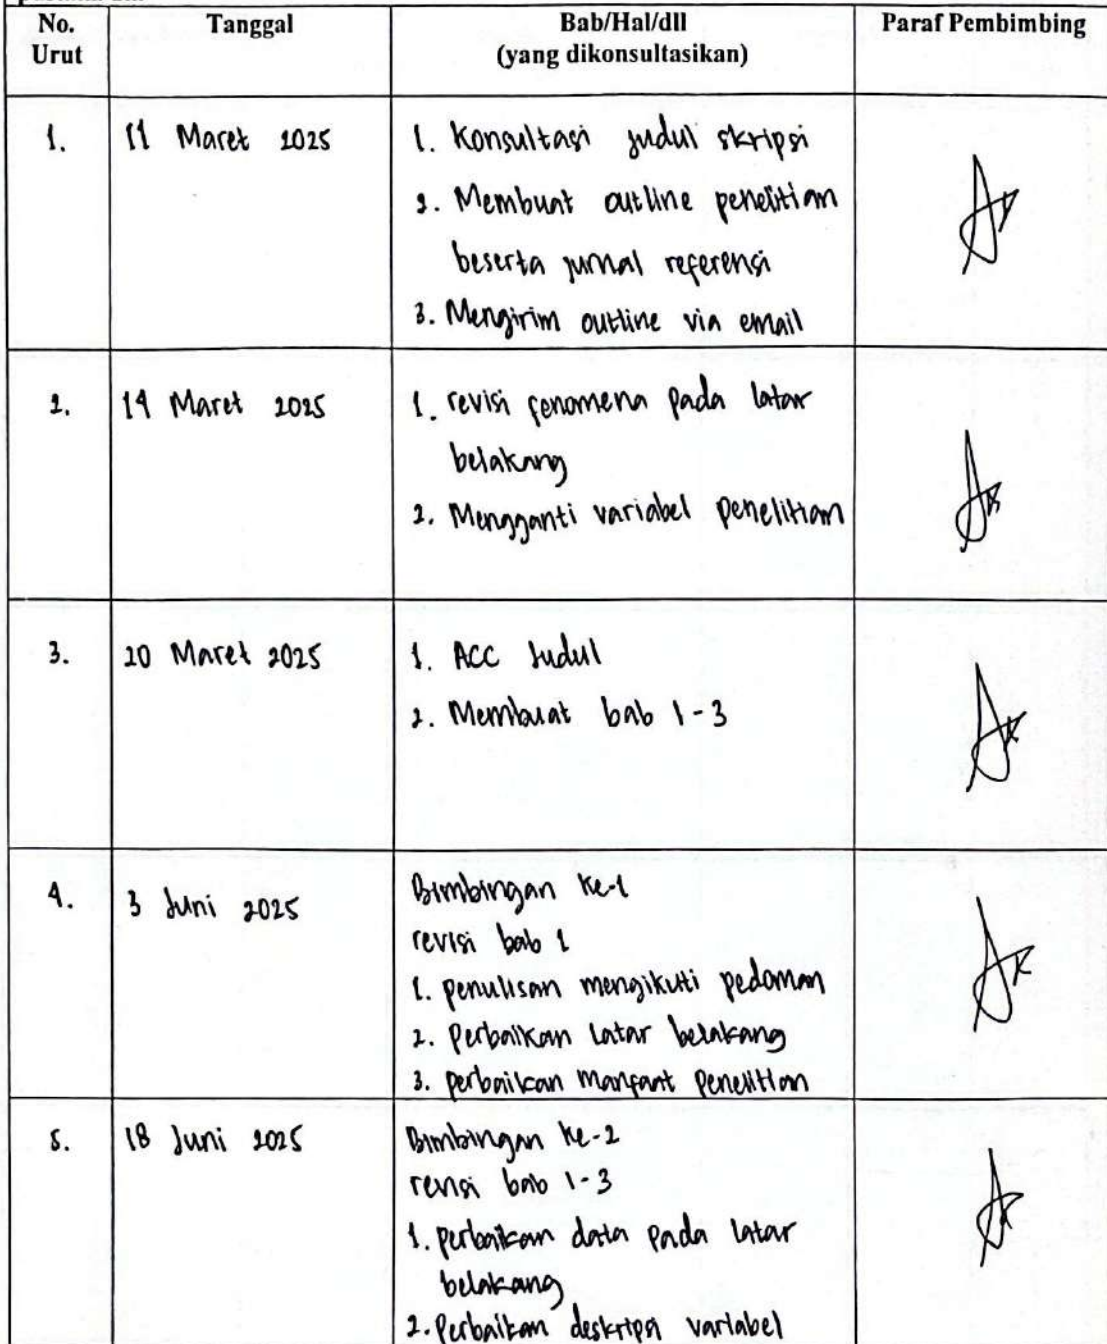 No. Urut Tanggal Bab/Hal/dll (yang dikonsultasikan) Paraf Pembimbing
1. 11 Maret 2025
1. Konsultasi judul skripsi
2. Membuat outline penelitian
beserta jurnal referensi
3. Mengirim outline via email
2. 14 Maret 2025
1. revisi fenomena pada latar
belakang
2. Mengganti variabel penelitian
3. 20 Maret 2025
1. ACC Judul
2. Membuat bab 1-3
4. 3 Juni 2025
Bimbingan ke-1
revisi bab 1
1. penulisan mengikuti pedoman
2. Perbaikan latar belakang
3. perbaikan manfaat penelitian
5. 18 Juni 2025
Bimbingan ke-2
revisi bab 1-3
1. perbaikan data pada latar
belakang
2. Perbaikan deskripsi variabel